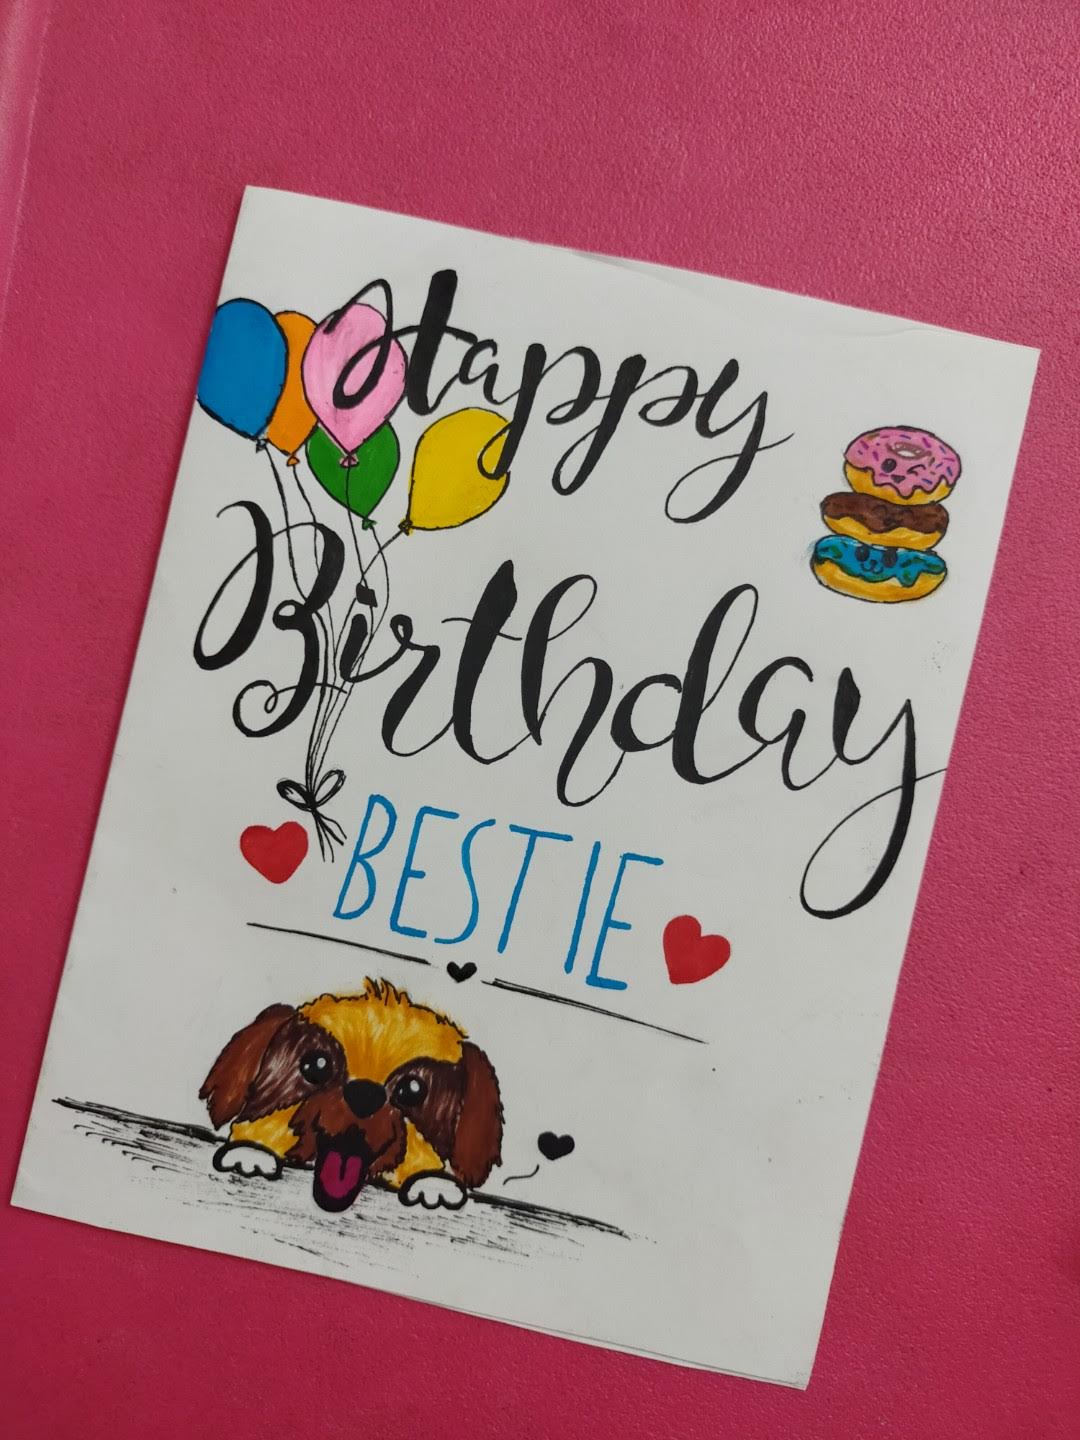 Happy
Birthday
BESTIE